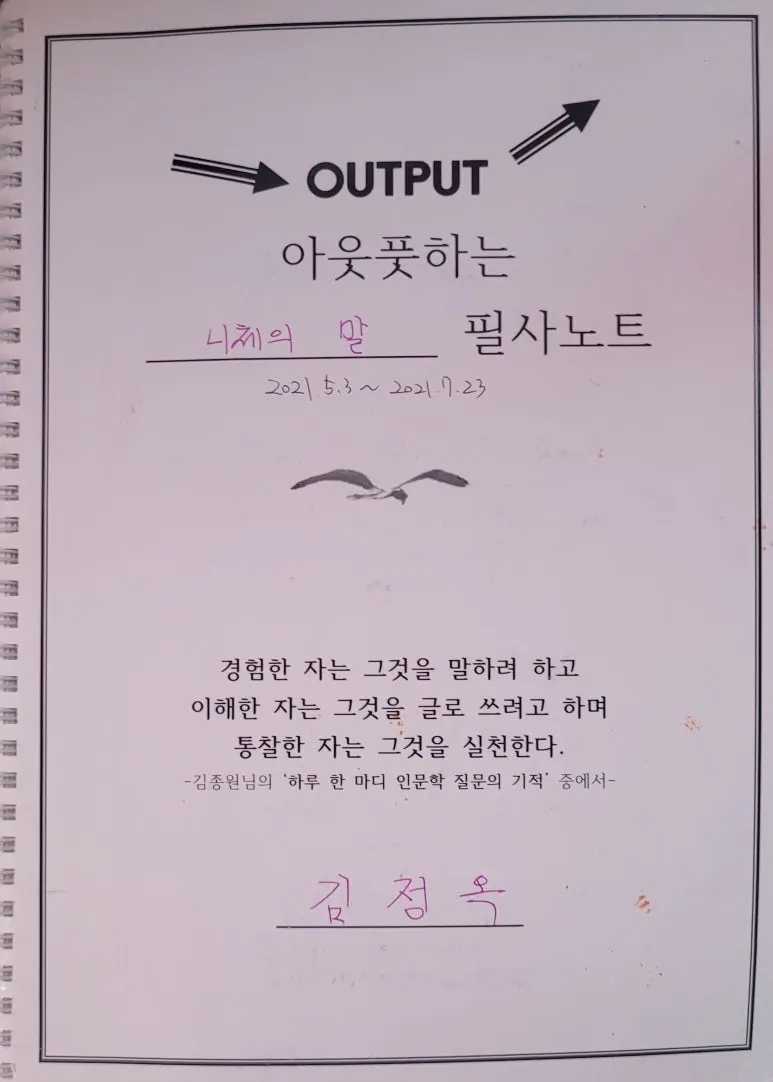 OUTPUT
아웃풋하는
니체의 말 필사노트
2021 5.3 ~ 2021.7.23
경험한 자는 그것을 말하려 하고
이해한 자는 그것을 글로 쓰려고 하며
통찰한 자는 그것을 실천한다.
-김종원님의 '하루 한 마디 인문학 질문의 기적' 중에서-
김정옥